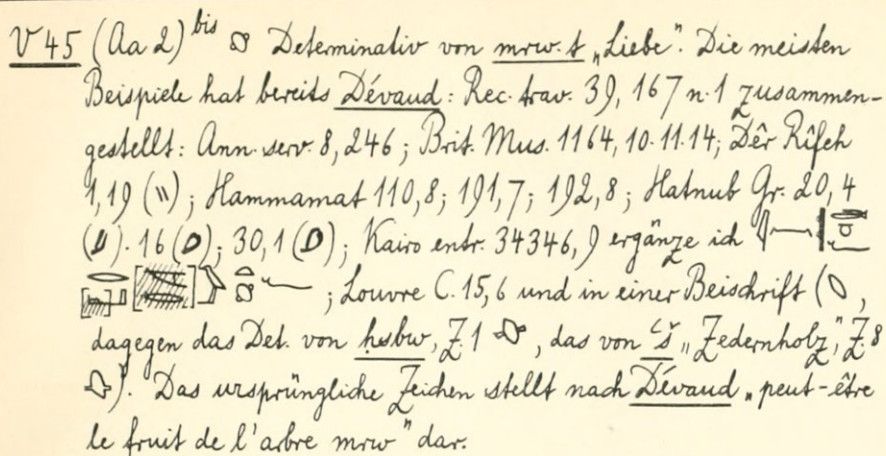 V 45 (Aa 2)bis Determinativ von mrw.t „Liebe”. Die meisten
Beispiele hat bereits Dévaud: Rec. trav. 39, 167 n. 1 zusammen-
gestellt: Ann. serv. 8, 246; Brit. Mus. 1164, 10. 11. 14; Dêr Rîfeh
1, 19 (\\); Hammamat 110, 8; 191, 7; 192, 8; Hatnub Gr. 20, 4
. 16; 30, 1; Kairo entr. 34346, 9 ergänze ich
; Louvre C. 15, 6 und in einer Beischrift (
dagegen das Det. von ḥsbw, Z. 1, das von ꜥš „Zedernholz”, Z. 8
). Das ursprüngliche Zeichen stellt nach Dévaud „peut-être
le fruit de l'arbre mrw” dar.